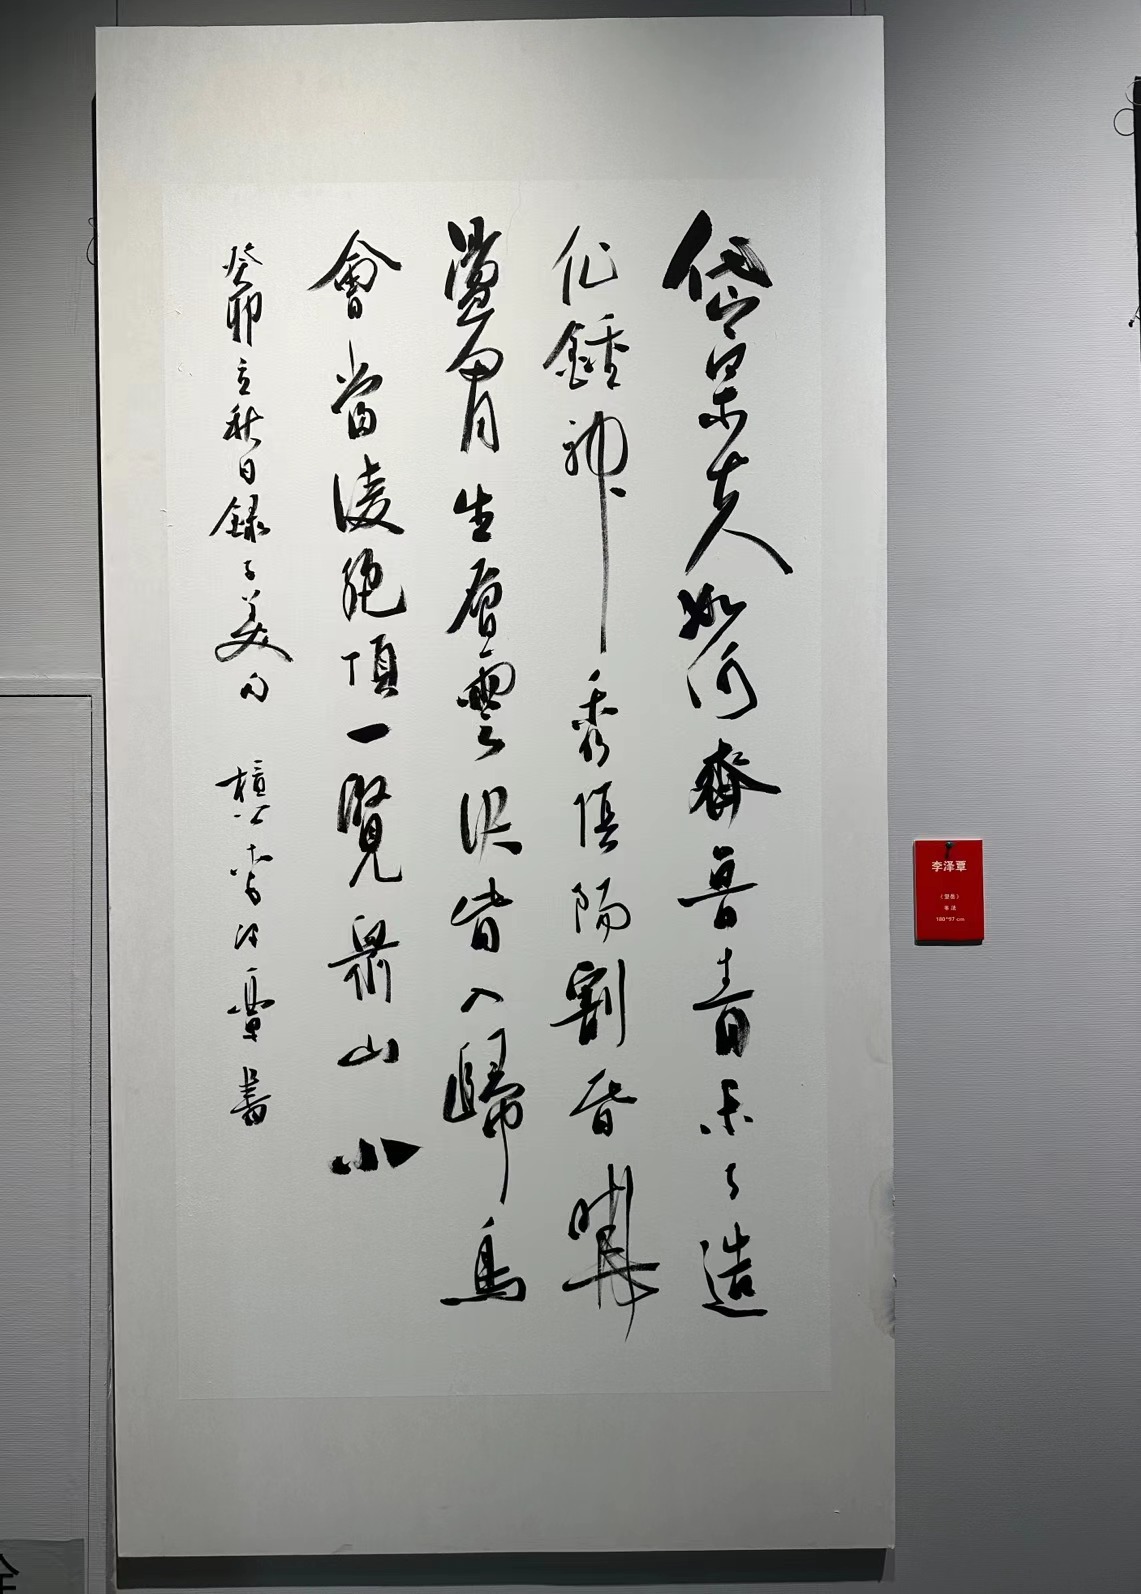 岱宗夫如何齊魯青未了造
化鍾神秀陰陽割昏曉
盪胷生層雲决眥入歸鳥
會當淩絶頂一覽衆山小
癸卯立秋日録子美句 李泽覃書
李泽覃
《望岳》
书法
180*97 cm